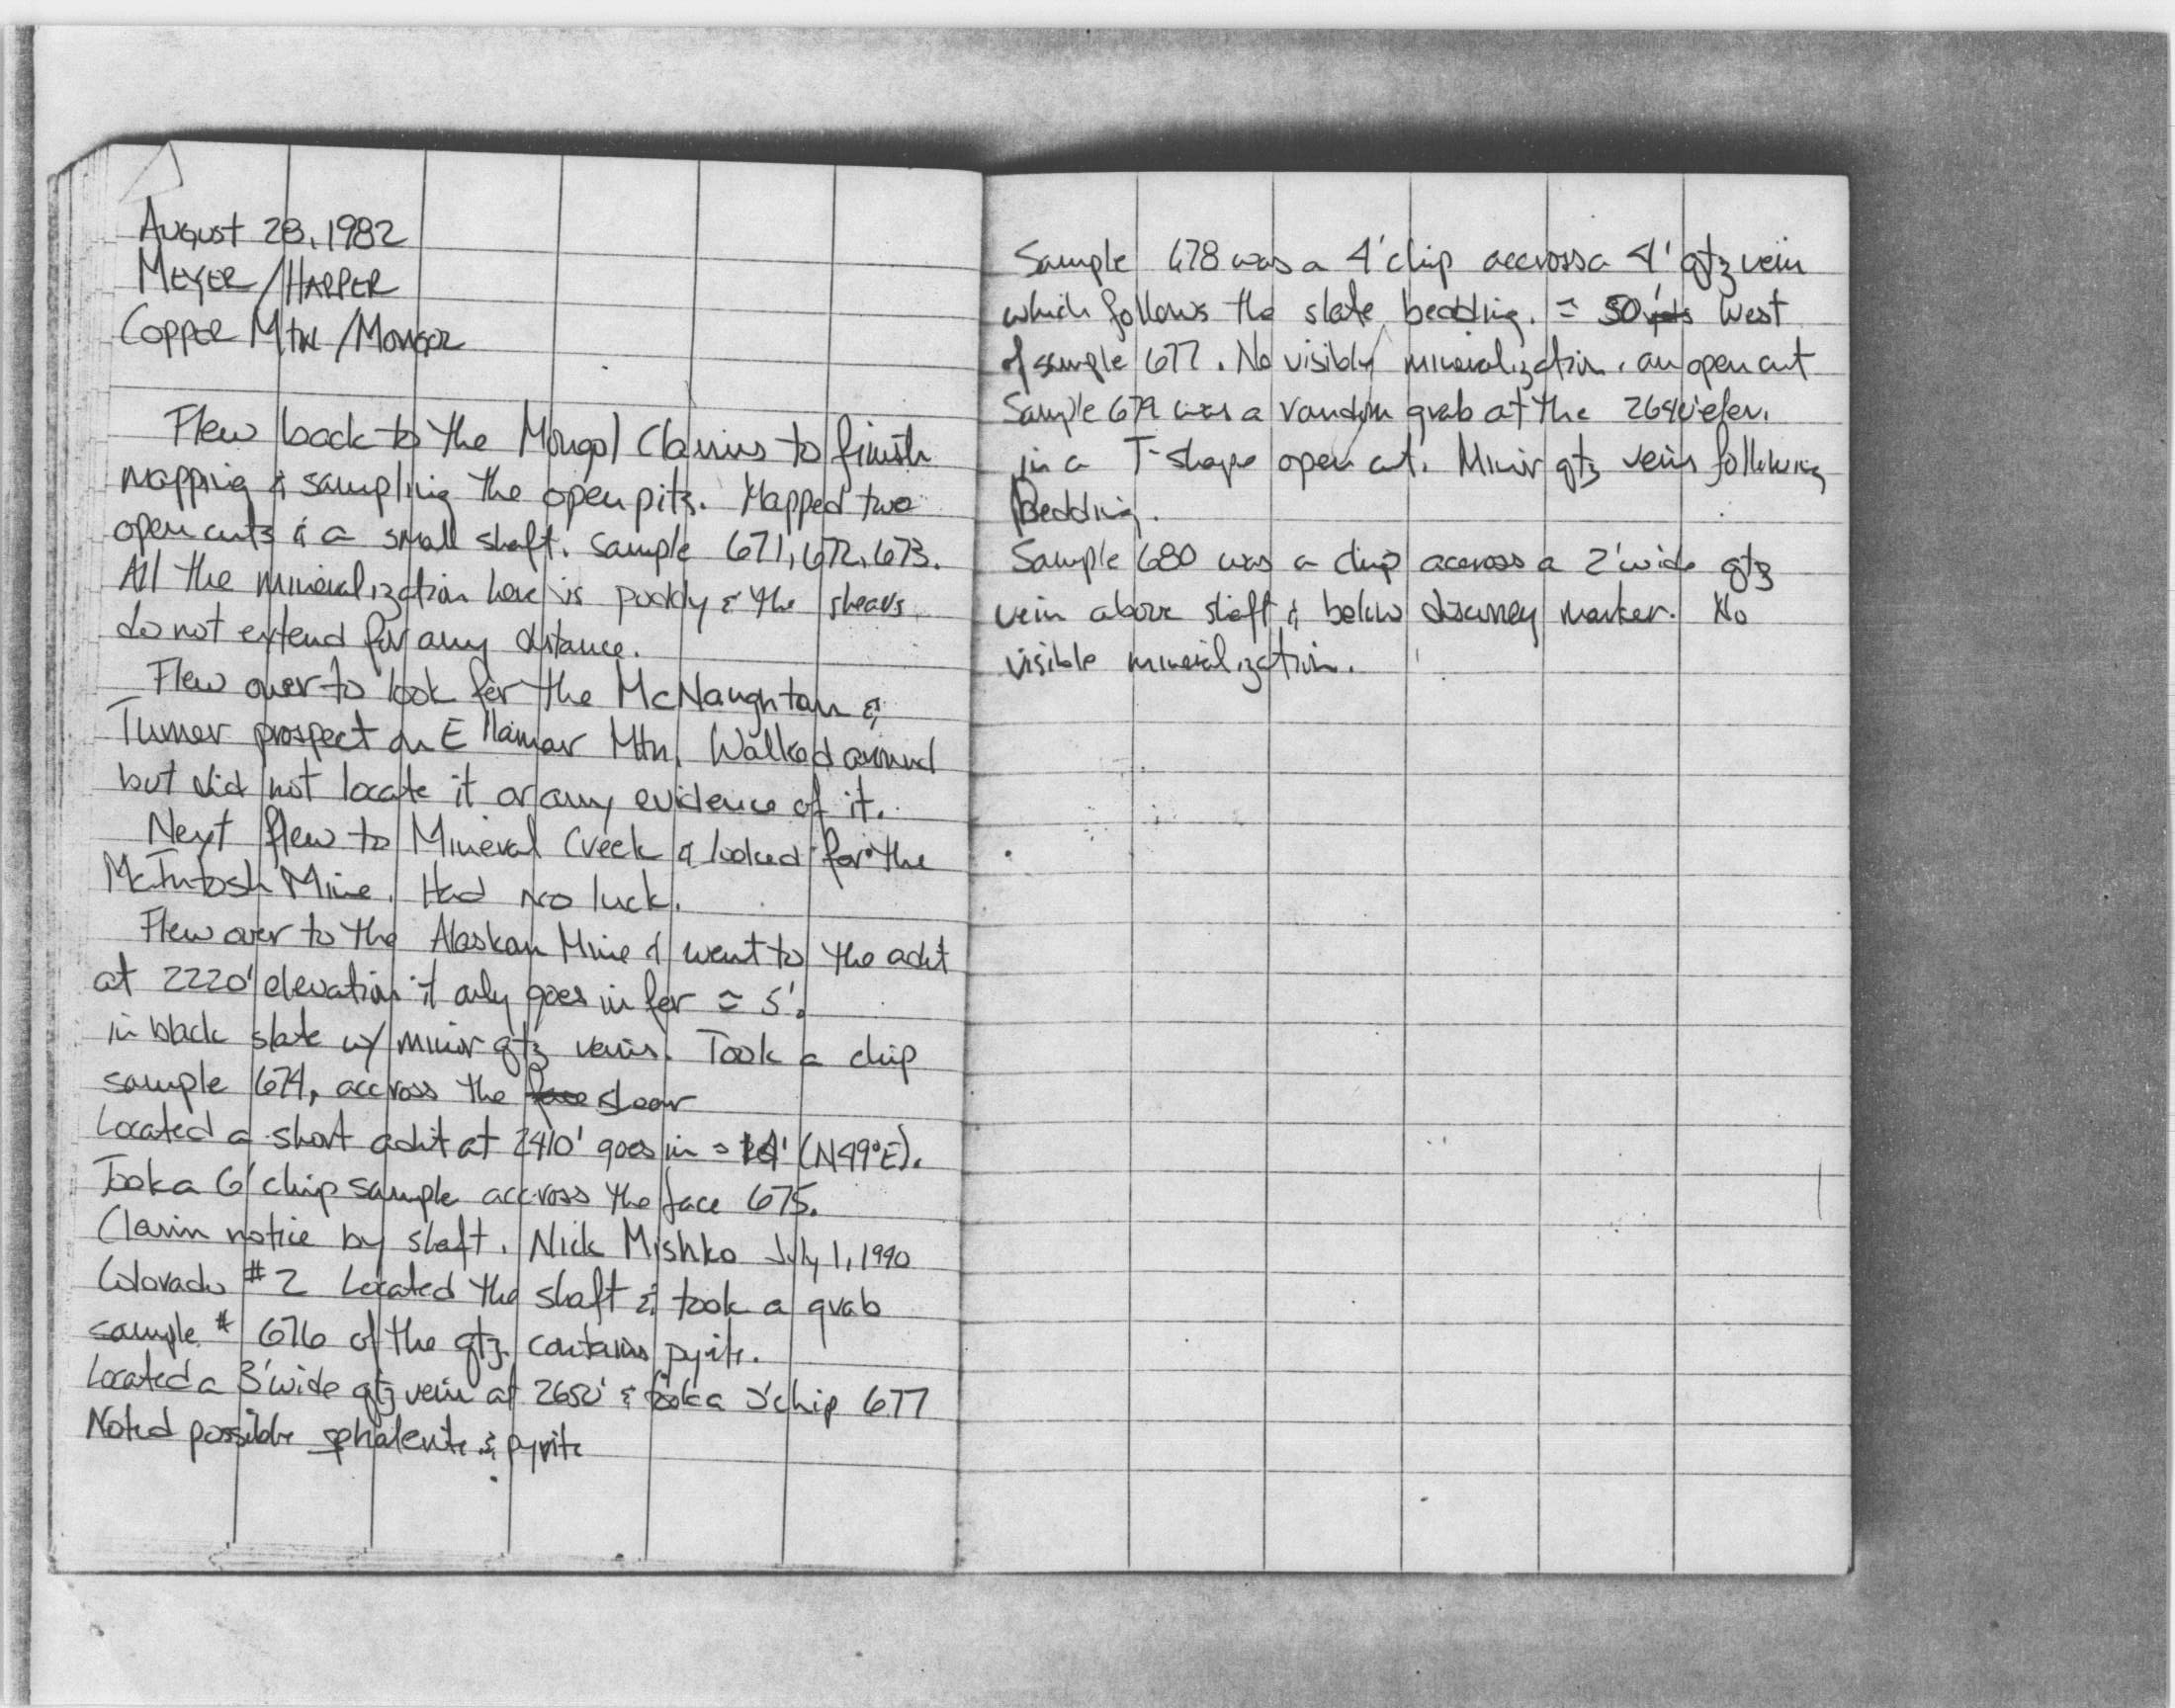 August 28, 1982
MEYER/HARPER
COPPER Mtn /MONGOL
Flew back to the Mongol Claims to finish
mapping & sampling the open pits. Mapped two
open cuts & a small shaft. Sample 671, 672, 673.
All the mineralization here is poddy & the shears
do not extend for any distance.
Flew over to look for the McNaughton &
Turner prospect on Ellamar Mtn. Walked around
but did not locate it or any evidence of it.
Next flew to Mineral Creek & looked for the
McIntosh Mine. Had no luck.
Flew over to the Alaskan Mine & went to the adit
at 2220' elevation it only goes in for ≈ 5'.
in black slate w/ minor qtz veins. Took a chip
sample 674, accross the face shear
Located a short adit at 2410' goes in ≈ (N49°E).
Took a 6' chip sample accross the face 675.
Claim notice by shaft. Nick Mishko July 1, 1990
Colorado #2 Located the shaft & took a grab
sample # 676 of the qtz. contains pyrite.
Located a 3' wide qtz vein at 2650' & took a 3' chip 677
Noted possible sphalerite & pyrite
Sample 678 was a 4' chip accross a 4' qtz vein
which follows the slate bedding. ≈ 50' West
of sample 677. No visible mineralization. an open cut
Sample 679 was a random grab at the 2640' elev.
in a T-shape open cut. Minor qtz veins following
Bedding.
Sample 680 was a chip accross a 2' wide qtz
vein above shaft & below discovery marker. No
visible mineralization.